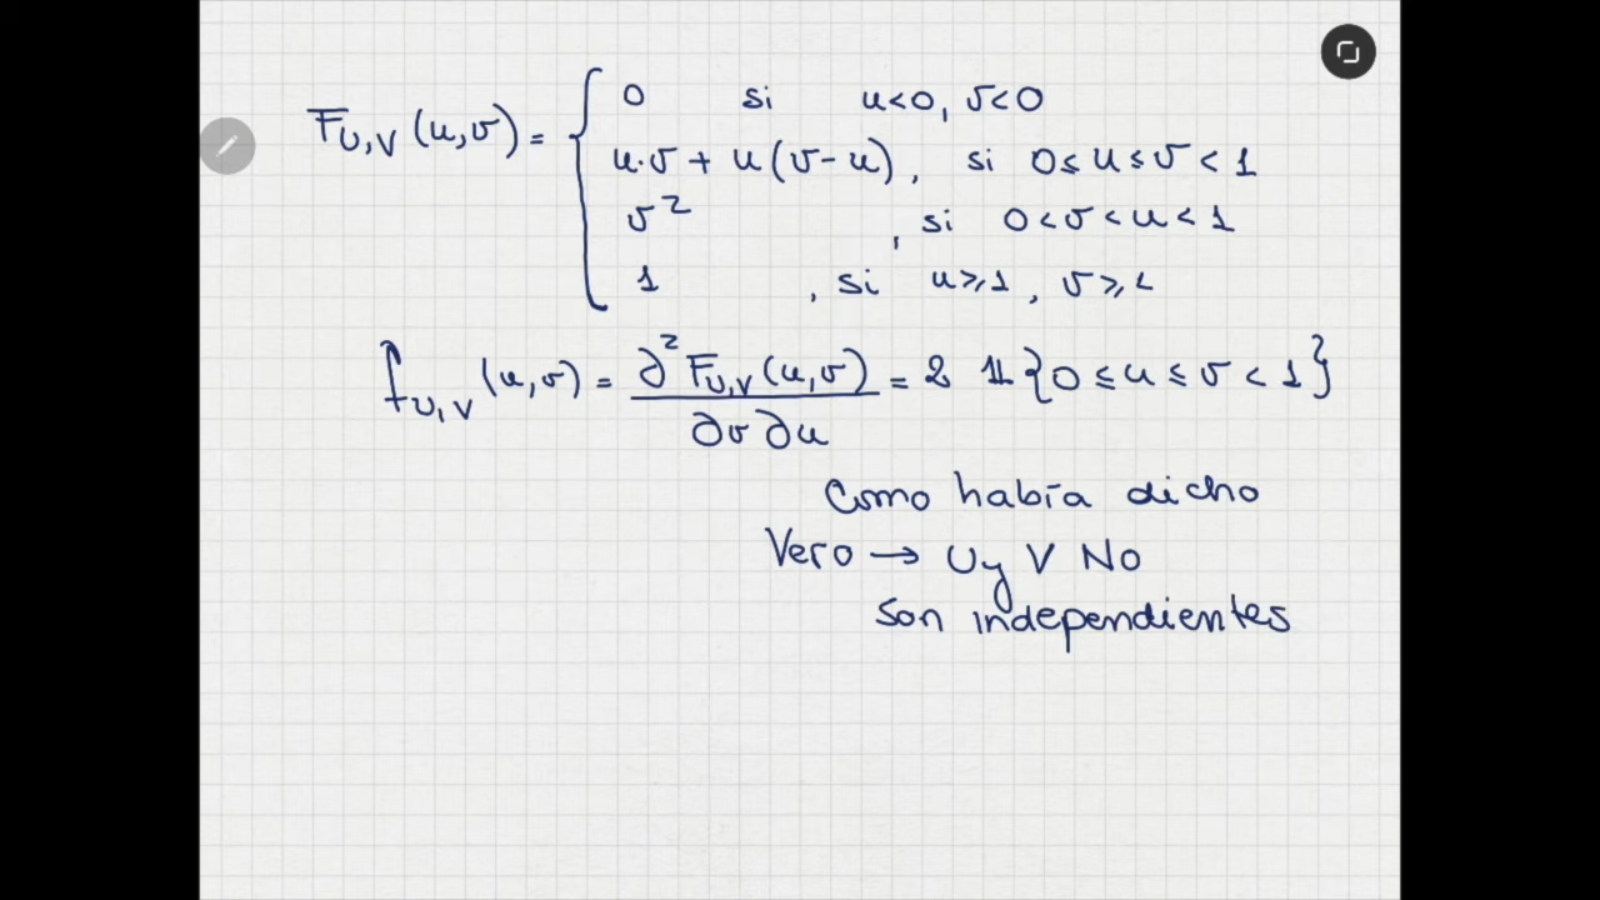 F_{U,V}(u,v) = { 0 si u<0, v<0
u·v + u(v-u), si 0≤u≤v<1
v², si 0<v<u<1
1, si u≥1, v≥1
f_{U,V}(u,v) = ∂²F_{U,V}(u,v) / ∂v∂u = 2 𝟙{0≤u≤v<1}
Como había dicho
Vero → U y V No
son independientes